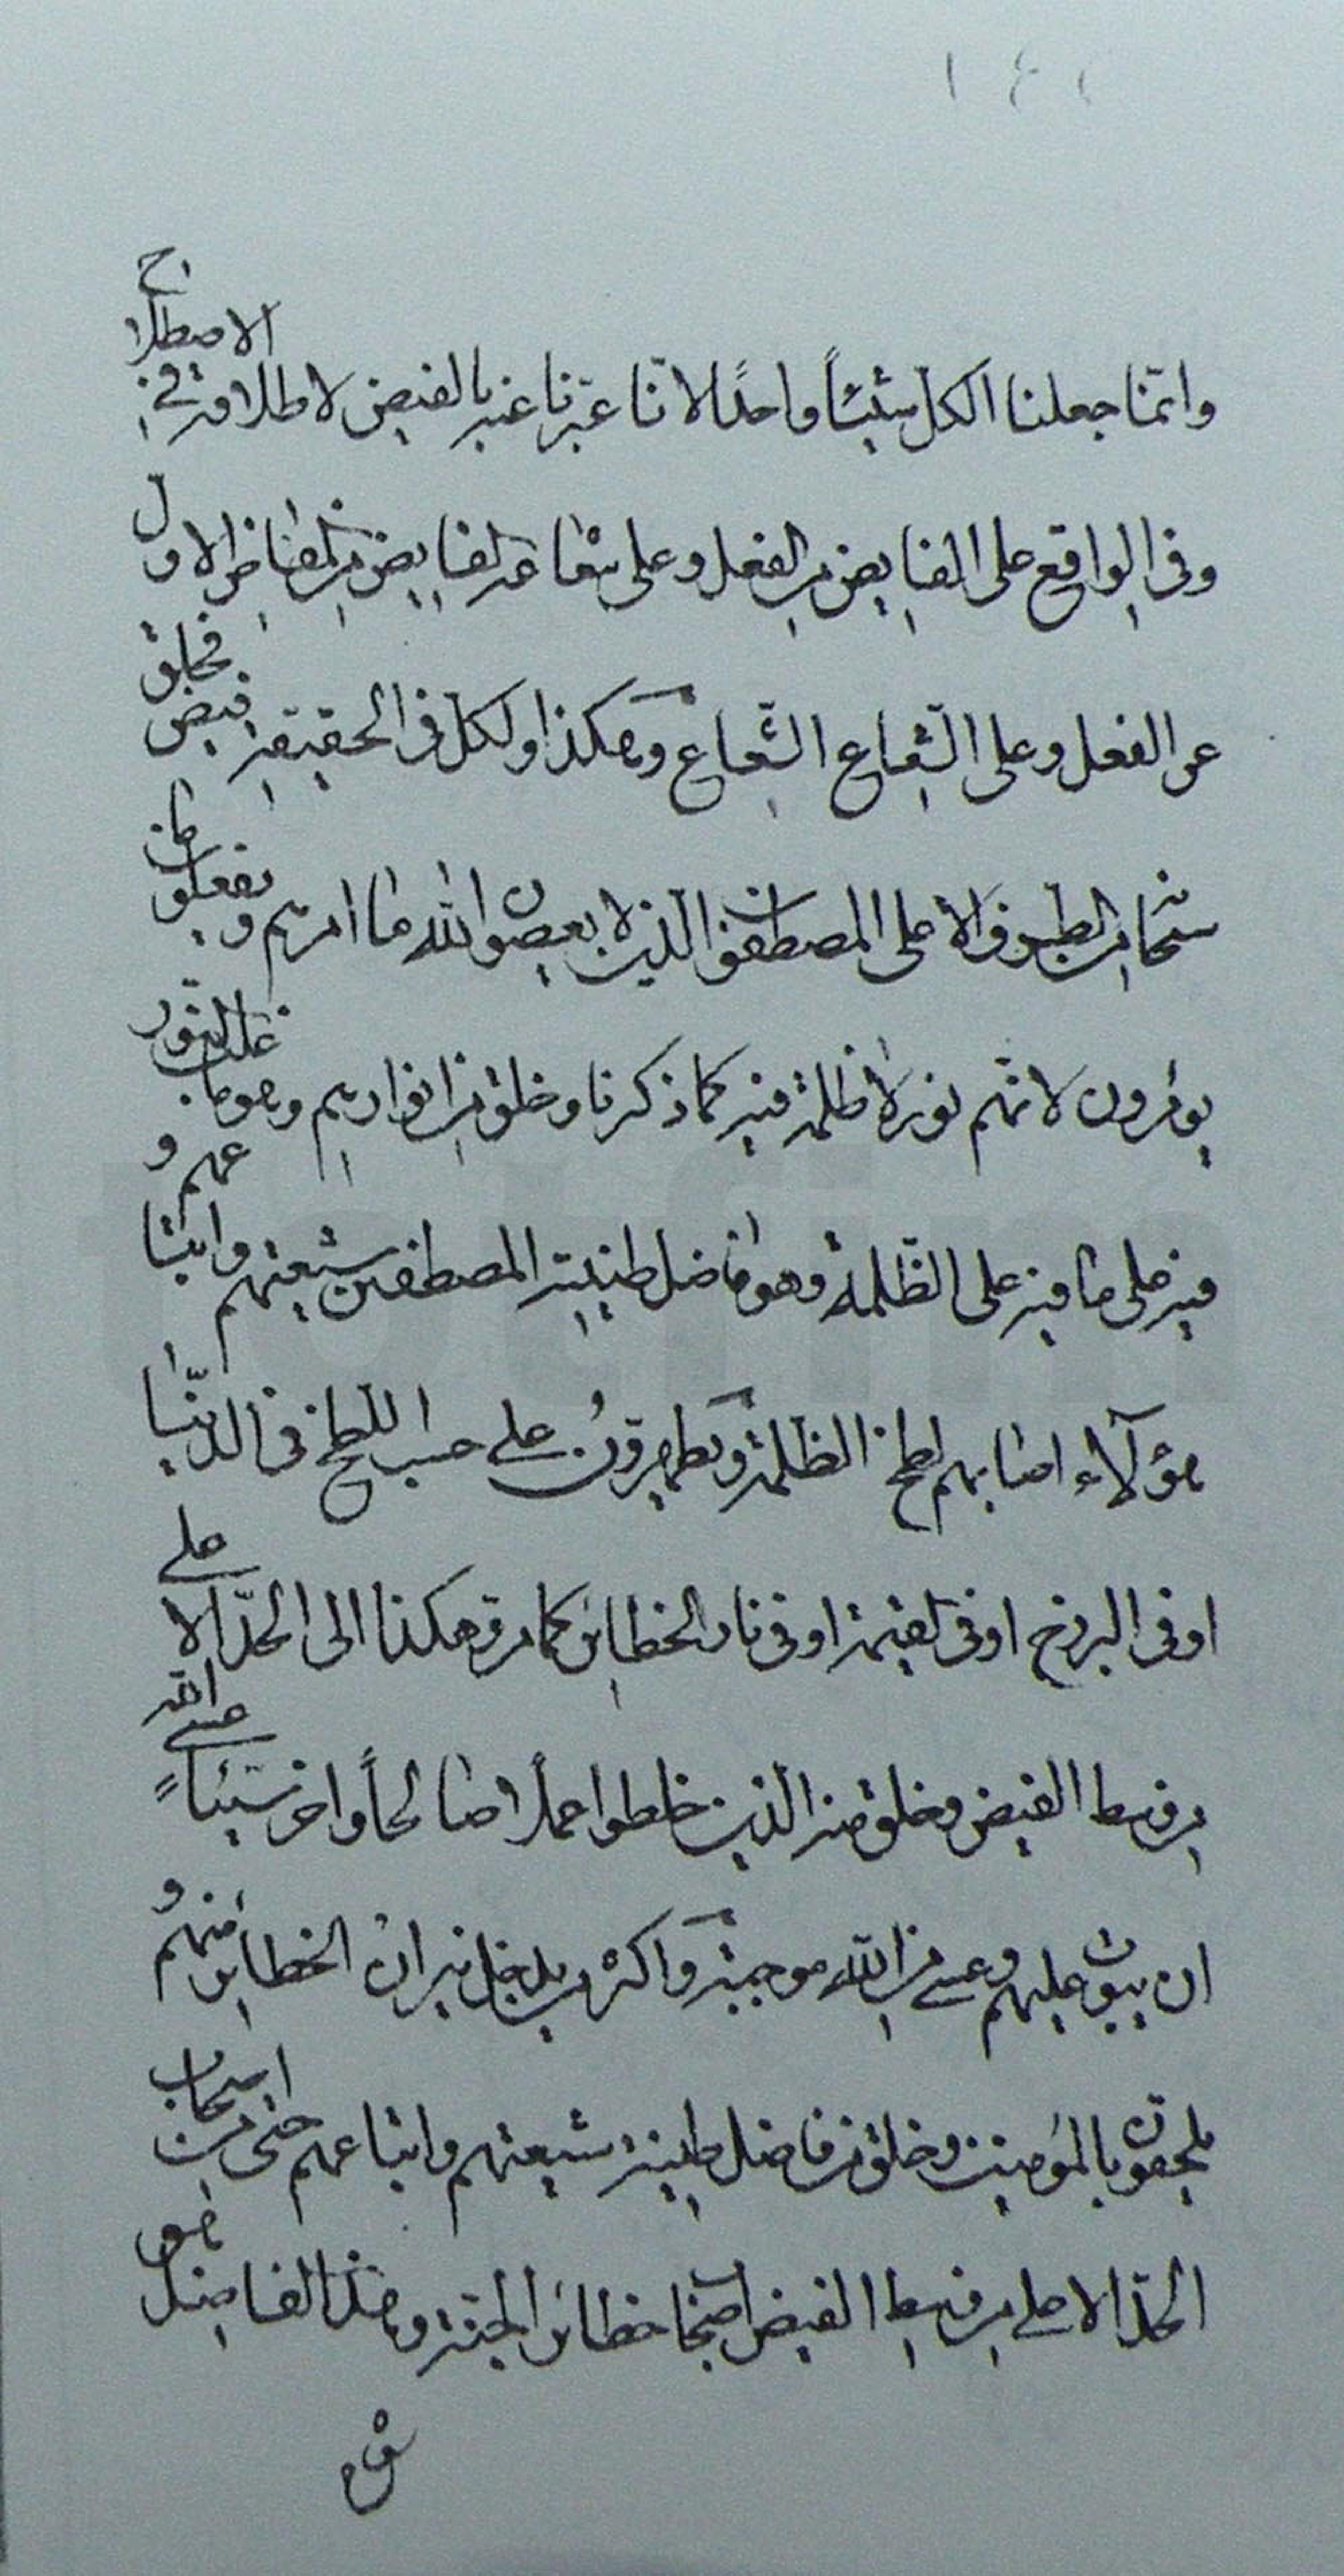 ١٤٢
وانّما جعلنا الكل شيئاً واحدًا لانّا عبّرنا عنه بالفيض لاطلاقه في الاصطلاح
وفى الواقع على الفايض من الفعل وعلى شعاعه الفايض من المفاض الاول
عن الفعل وعلى الشّعاع الشّعاع وهكذا ولكل فى الحقيقة فيض فخلق
من الطرف الاعلى المصطفون الذين لا يعصون الله ما امرهم ويفعلون ما
يؤمرون لانهم نور لا ظلمة فيه كما ذكرنا وخلق من انوارهم وهو ما غلب النّور
فيه على ما فيه على الظّلمة وهو فاضل طينته المصطفين شيعتهم واتباعهم و
هؤلآء اصابهم لطخ الظلمة ويطهرون على حسب اللطخ فى الدّنيا
او فى البرزخ او فى القيمة او فى نار الخطاير كما مر وهكذا الى الحدّ الاعلى
من وسط الفيض وخلق منه الذين خلطوا عملا صالحاً واخر سيئاً عسى الله
ان يتوب عليهم وعسى من الله موجبة واكثر من يدخل نيران الخطاير منهم و
يلحقون بالمؤمنين وخلق من فاضل طينة شيعتهم واتباعهم حتى من اصحاب
الحدّ الاعلى من وسط الفيض اصحاب خطائر الجنة وهذا الفاضل هو